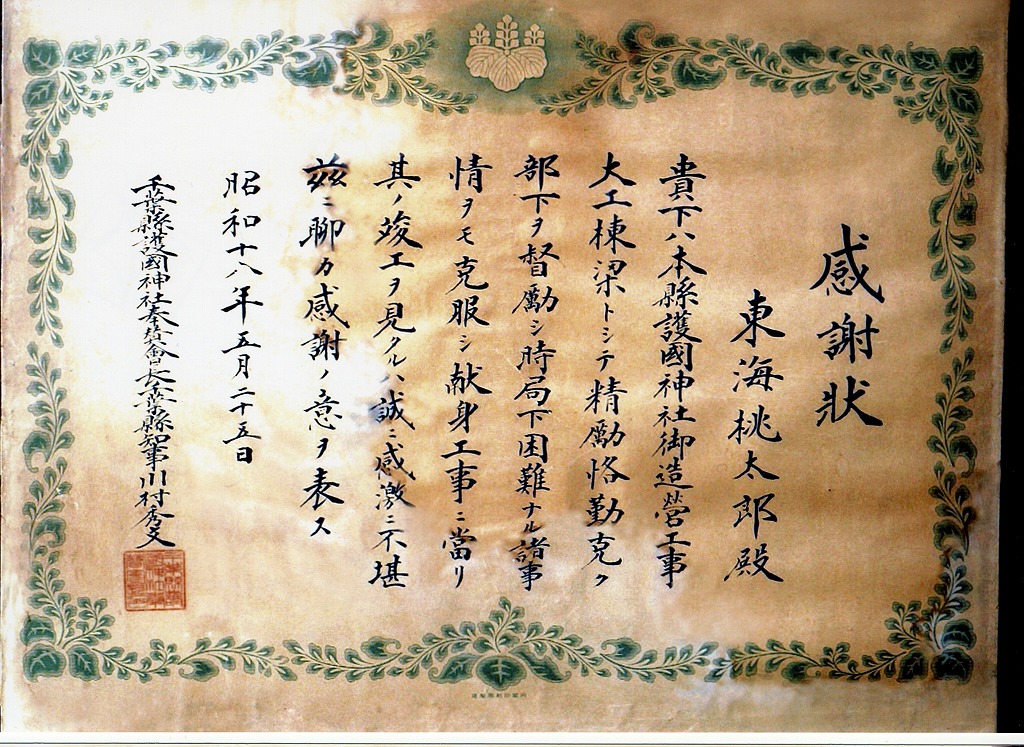 感謝狀
東海桃太郎殿
貴下ハ本縣護國神社御造營工事
大工棟梁トシテ精勵恪勤克ク
部下ヲ督勵シ時局下困難ナル諸事
情ヲモ克服シ献身工事ニ當リ
其ノ竣工ヲ見タルハ誠ニ感激ニ不堪
茲ニ聊カ感謝ノ意ヲ表ス
昭和十八年五月二十五日
千葉縣護國神社奉賛會長千葉縣知事川村秀文